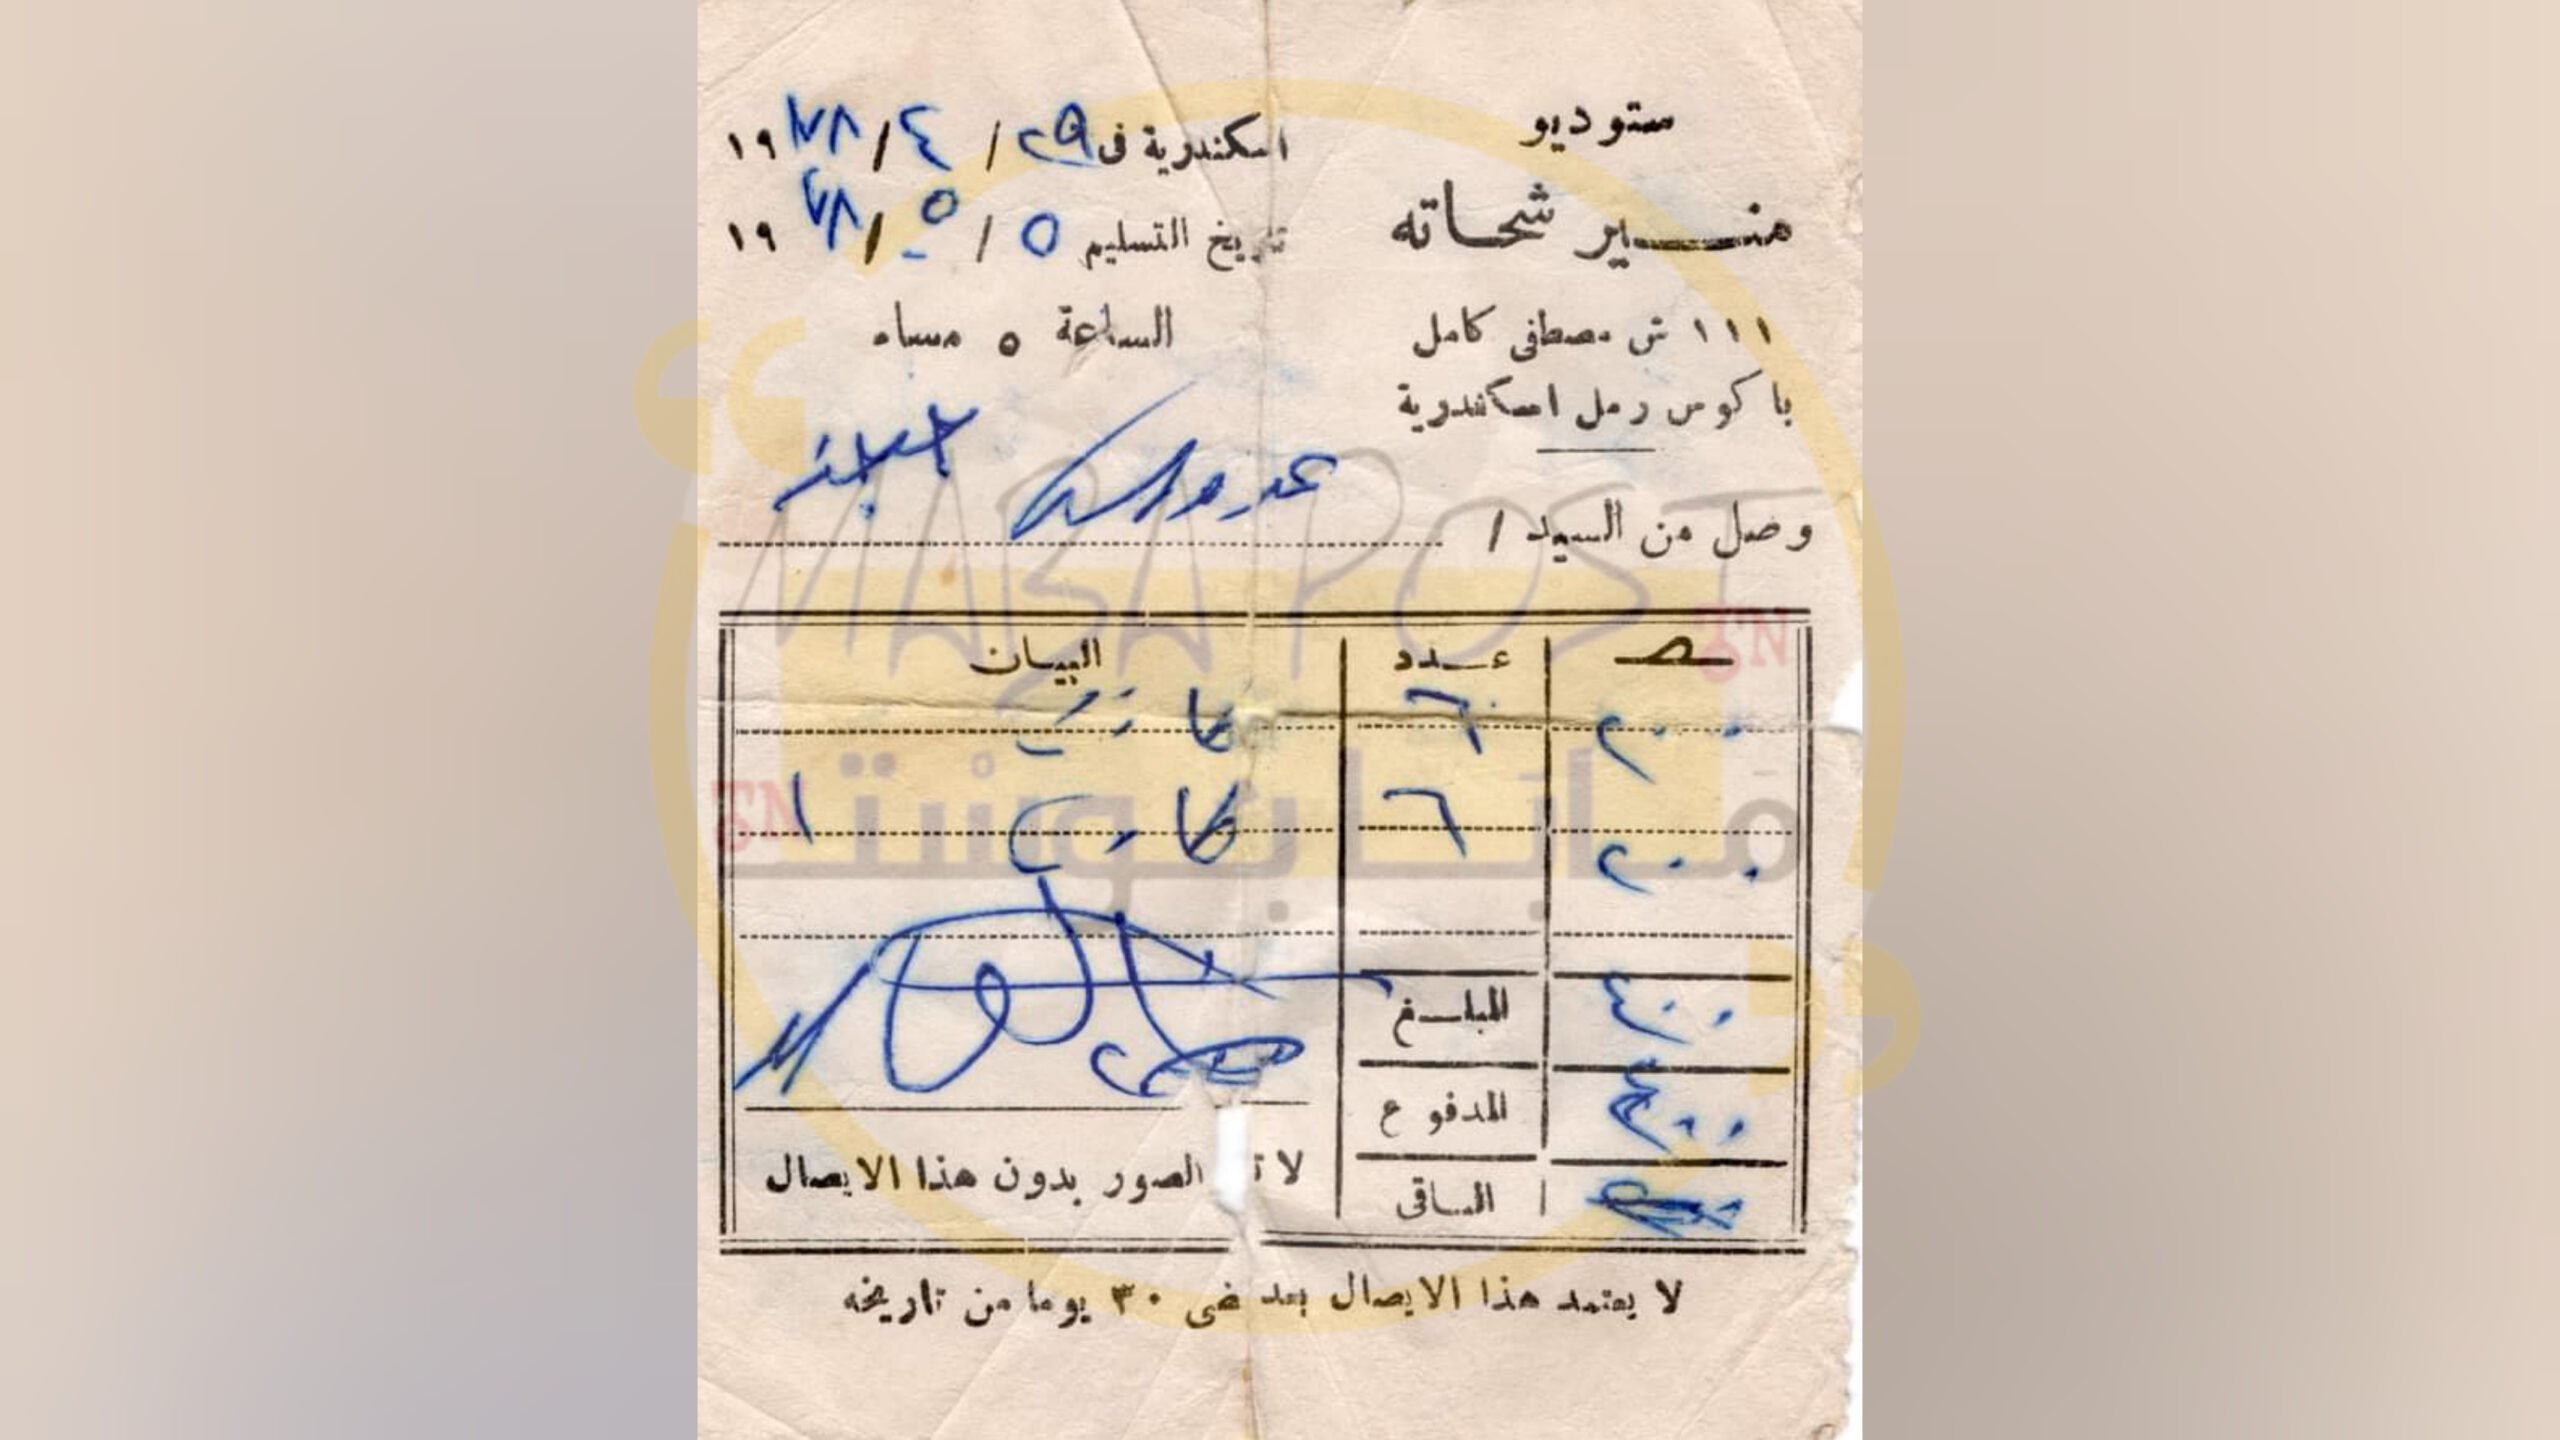 ستوديو
منير شحاته
١١١ ش مصطفى كامل
باكوس رمل اسكندرية
اسكندرية فى ٢٩ / ٤ / ١٩٧٨
تاريخ التسليم ٥ / ٥ / ١٩٧٨
الساعة ٥ مساء
وصل من السيد /
البيان عدد
كارت ٦ ٢٠٠
كارت ٦ ٢٠٠
المبلغ ٤٠٠
المدفوع ٤٠٠
الباقى
لا الصور بدون هذا الايصال
لا يعتمد هذا الايصال بعد ضى ٣٠ يوما من تاريخه
MABA POST
مابا بوست